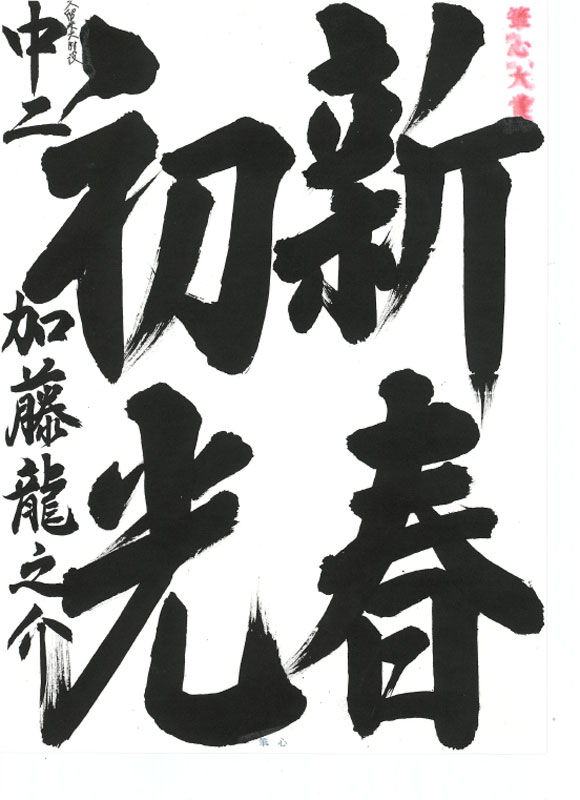 筆心大賞
新春
初光
中二 加藤龍之介
筆心